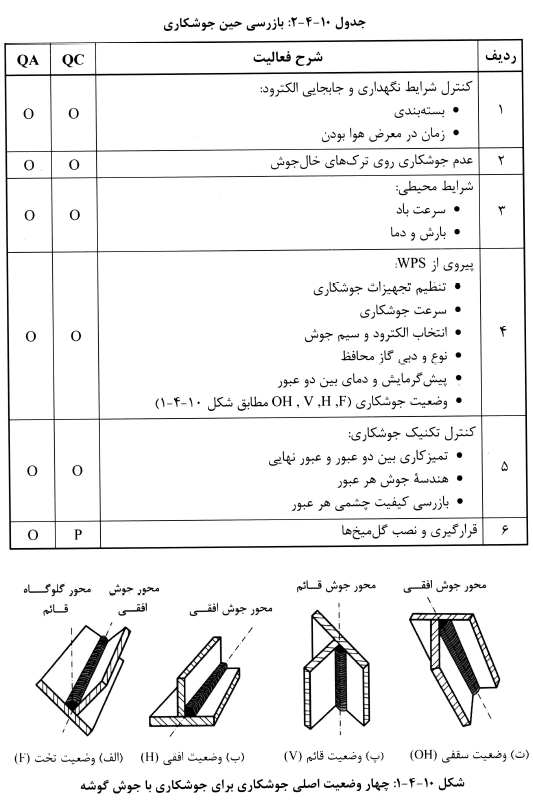 جدول ۱۰-۴-۲: بازرسی حین جوشکاری
ردیف شرح فعالیت QC QA
۱ کنترل شرایط نگهداری و جابجایی الکترود: O O
• بسته‌بندی
• زمان در معرض هوا بودن
۲ عدم جوشکاری روی ترک‌های خال‌جوش O O
۳ شرایط محیطی: O O
• سرعت باد
• بارش و دما
۴ پیروی از WPS: O O
• تنظیم تجهیزات جوشکاری
• سرعت جوشکاری
• انتخاب الکترود و سیم جوش
• نوع و دبی گاز محافظ
• پیش‌گرمایش و دمای بین دو عبور
• وضعیت جوشکاری (OH , V ,H ,F مطابق شکل ۱۰-۴-۱)
۵ کنترل تکنیک جوشکاری: O O
• تمیزکاری بین دو عبور و عبور نهایی
• هندسهٔ جوش هر عبور
• بازرسی کیفیت چشمی هر عبور
۶ قرارگیری و نصب گل‌میخ‌ها P O
محور جوش افقی
محور جوش قائم
محور جوش افقی
محور جوش افقی
محور گلوگاه قائم
(ت) وضعیت سقفی (OH)
(پ) وضعیت قائم (V)
(ب) وضعیت افقی (H)
(الف) وضعیت تخت (F)
شکل ۱۰-۴-۱: چهار وضعیت اصلی جوشکاری برای جوشکاری با جوش گوشه